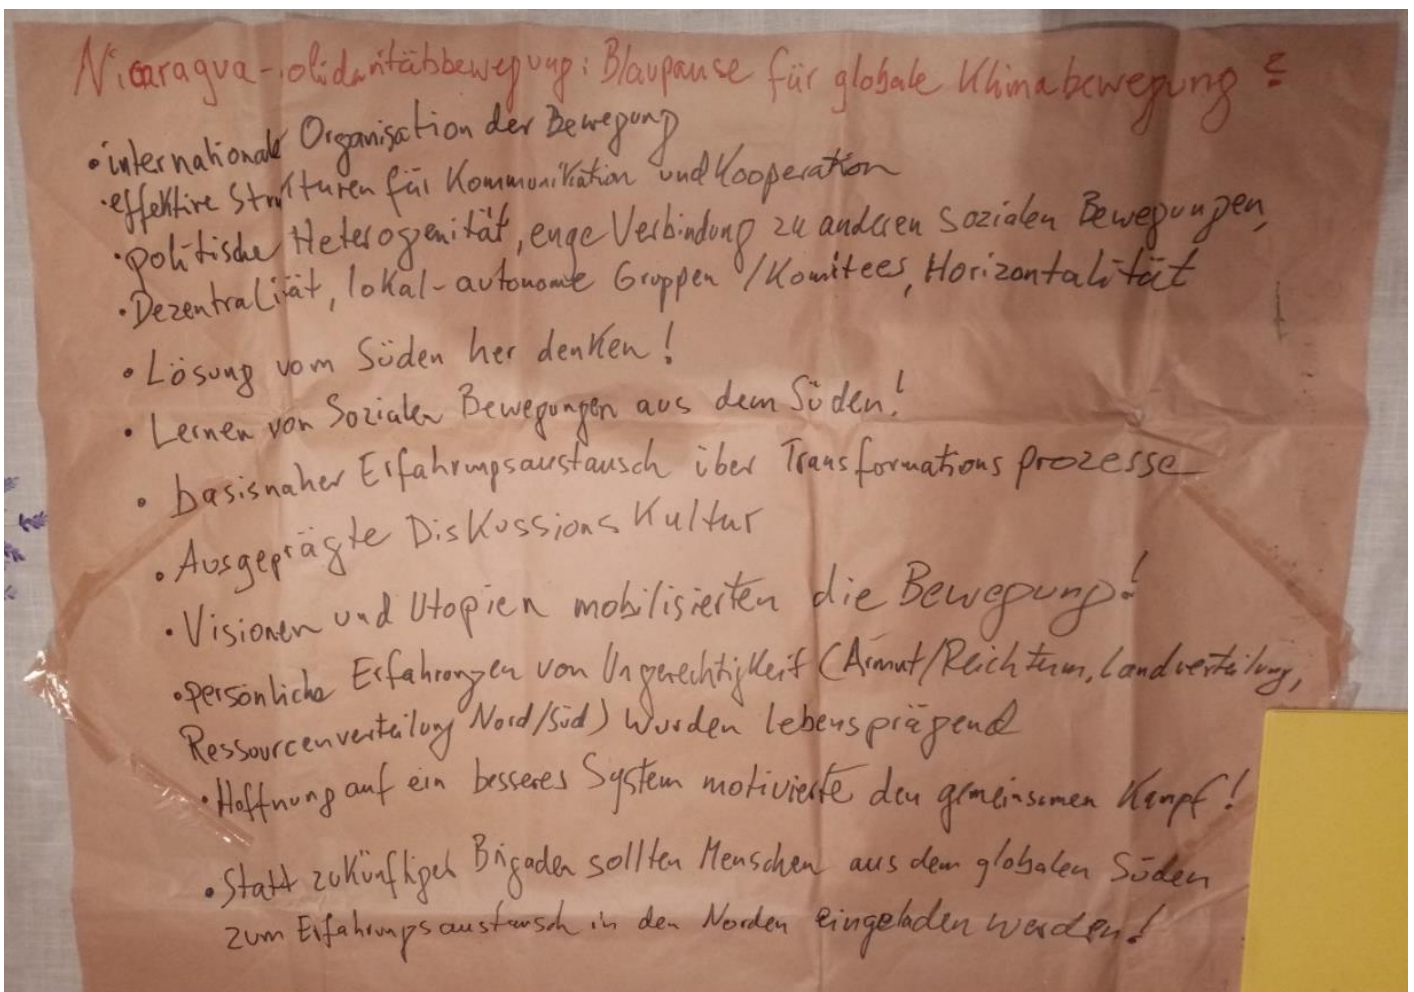 Nicaragua-olidaritätsbewegung: Blaupause für globale Klimabewegung?
• internationale Organisation der Bewegung
• effektive Strukturen für Kommunikation und Kooperation
• politische Heterogenität, enge Verbindung zu anderen sozialen Bewegungen,
• Dezentralität, lokal-autonome Gruppen / Komitees, Horizontalität
• Lösung vom Süden her denken!
• Lernen von Sozialen Bewegungen aus dem Süden!
• basisnaher Erfahrungsaustausch über Transformationsprozesse
• Ausgeprägte Diskussionskultur
• Visionen und Utopien mobilisierten die Bewegung!
• persönliche Erfahrungen von Ungerechtigkeit (Armut/Reichtum, Landverteilung,
Ressourcenverteilung Nord/Süd) wurden lebensprägend
• Hoffnung auf ein besseres System motivierte den gemeinsamen Kampf!
• Statt zukünftiger Brigaden sollten Menschen aus dem globalen Süden
zum Erfahrungsaustausch in den Norden eingeladen werden!